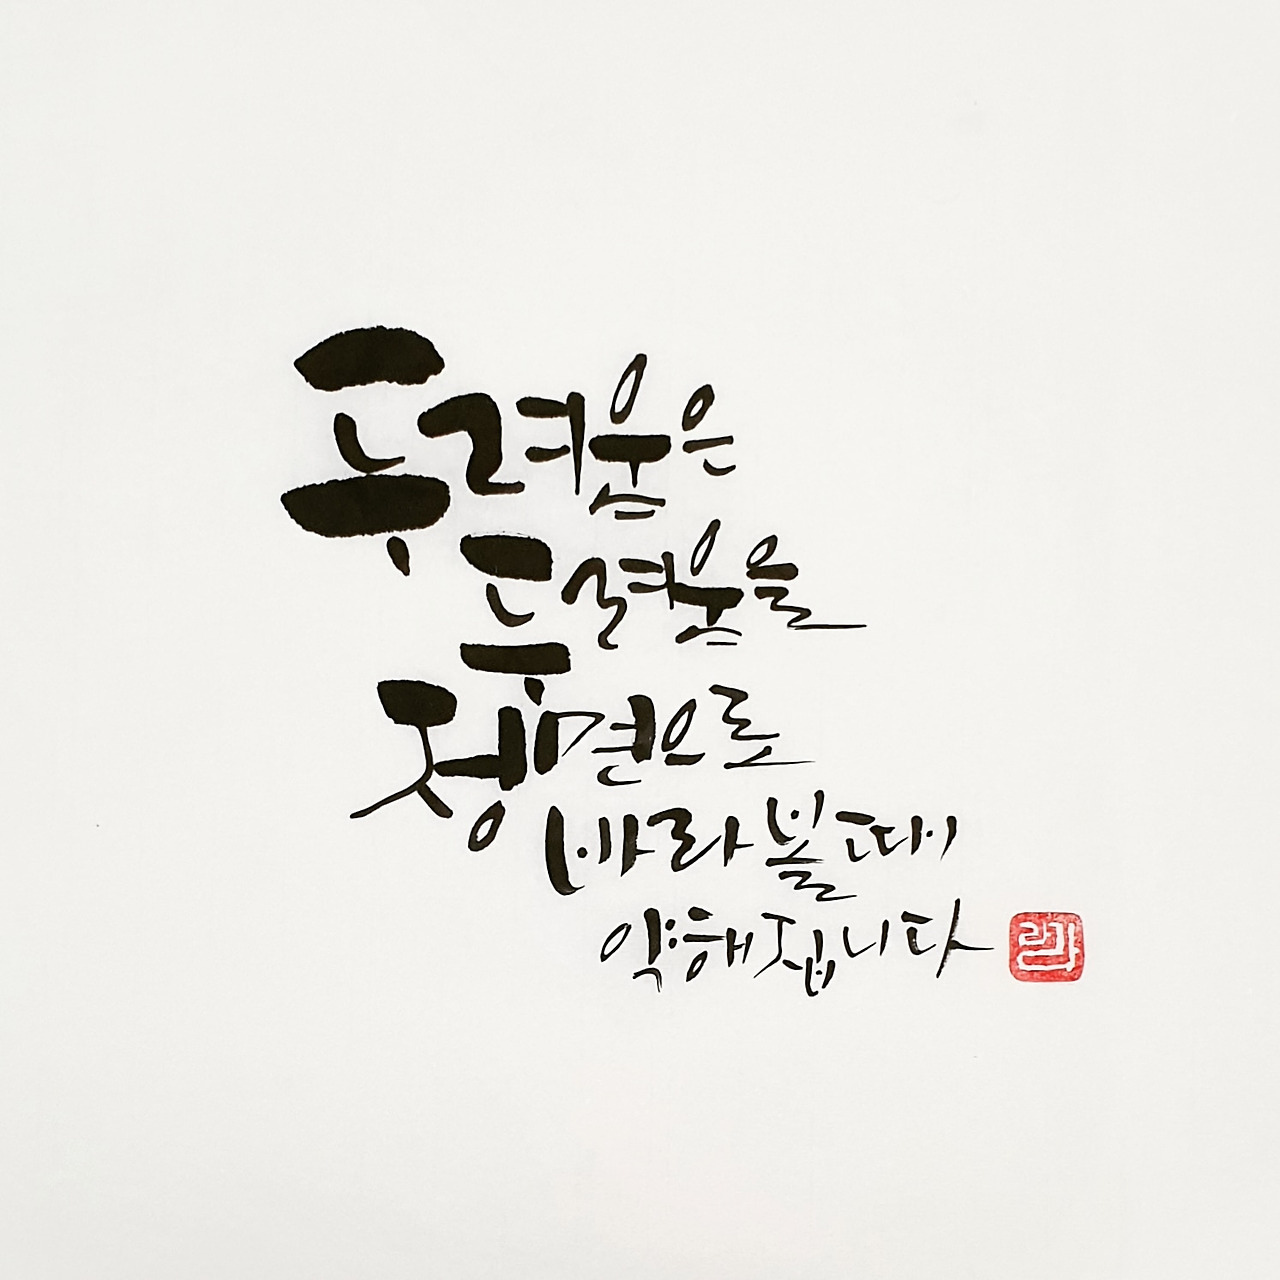 두려움은
두려움을
정면으로
바라볼 때
약해집니다